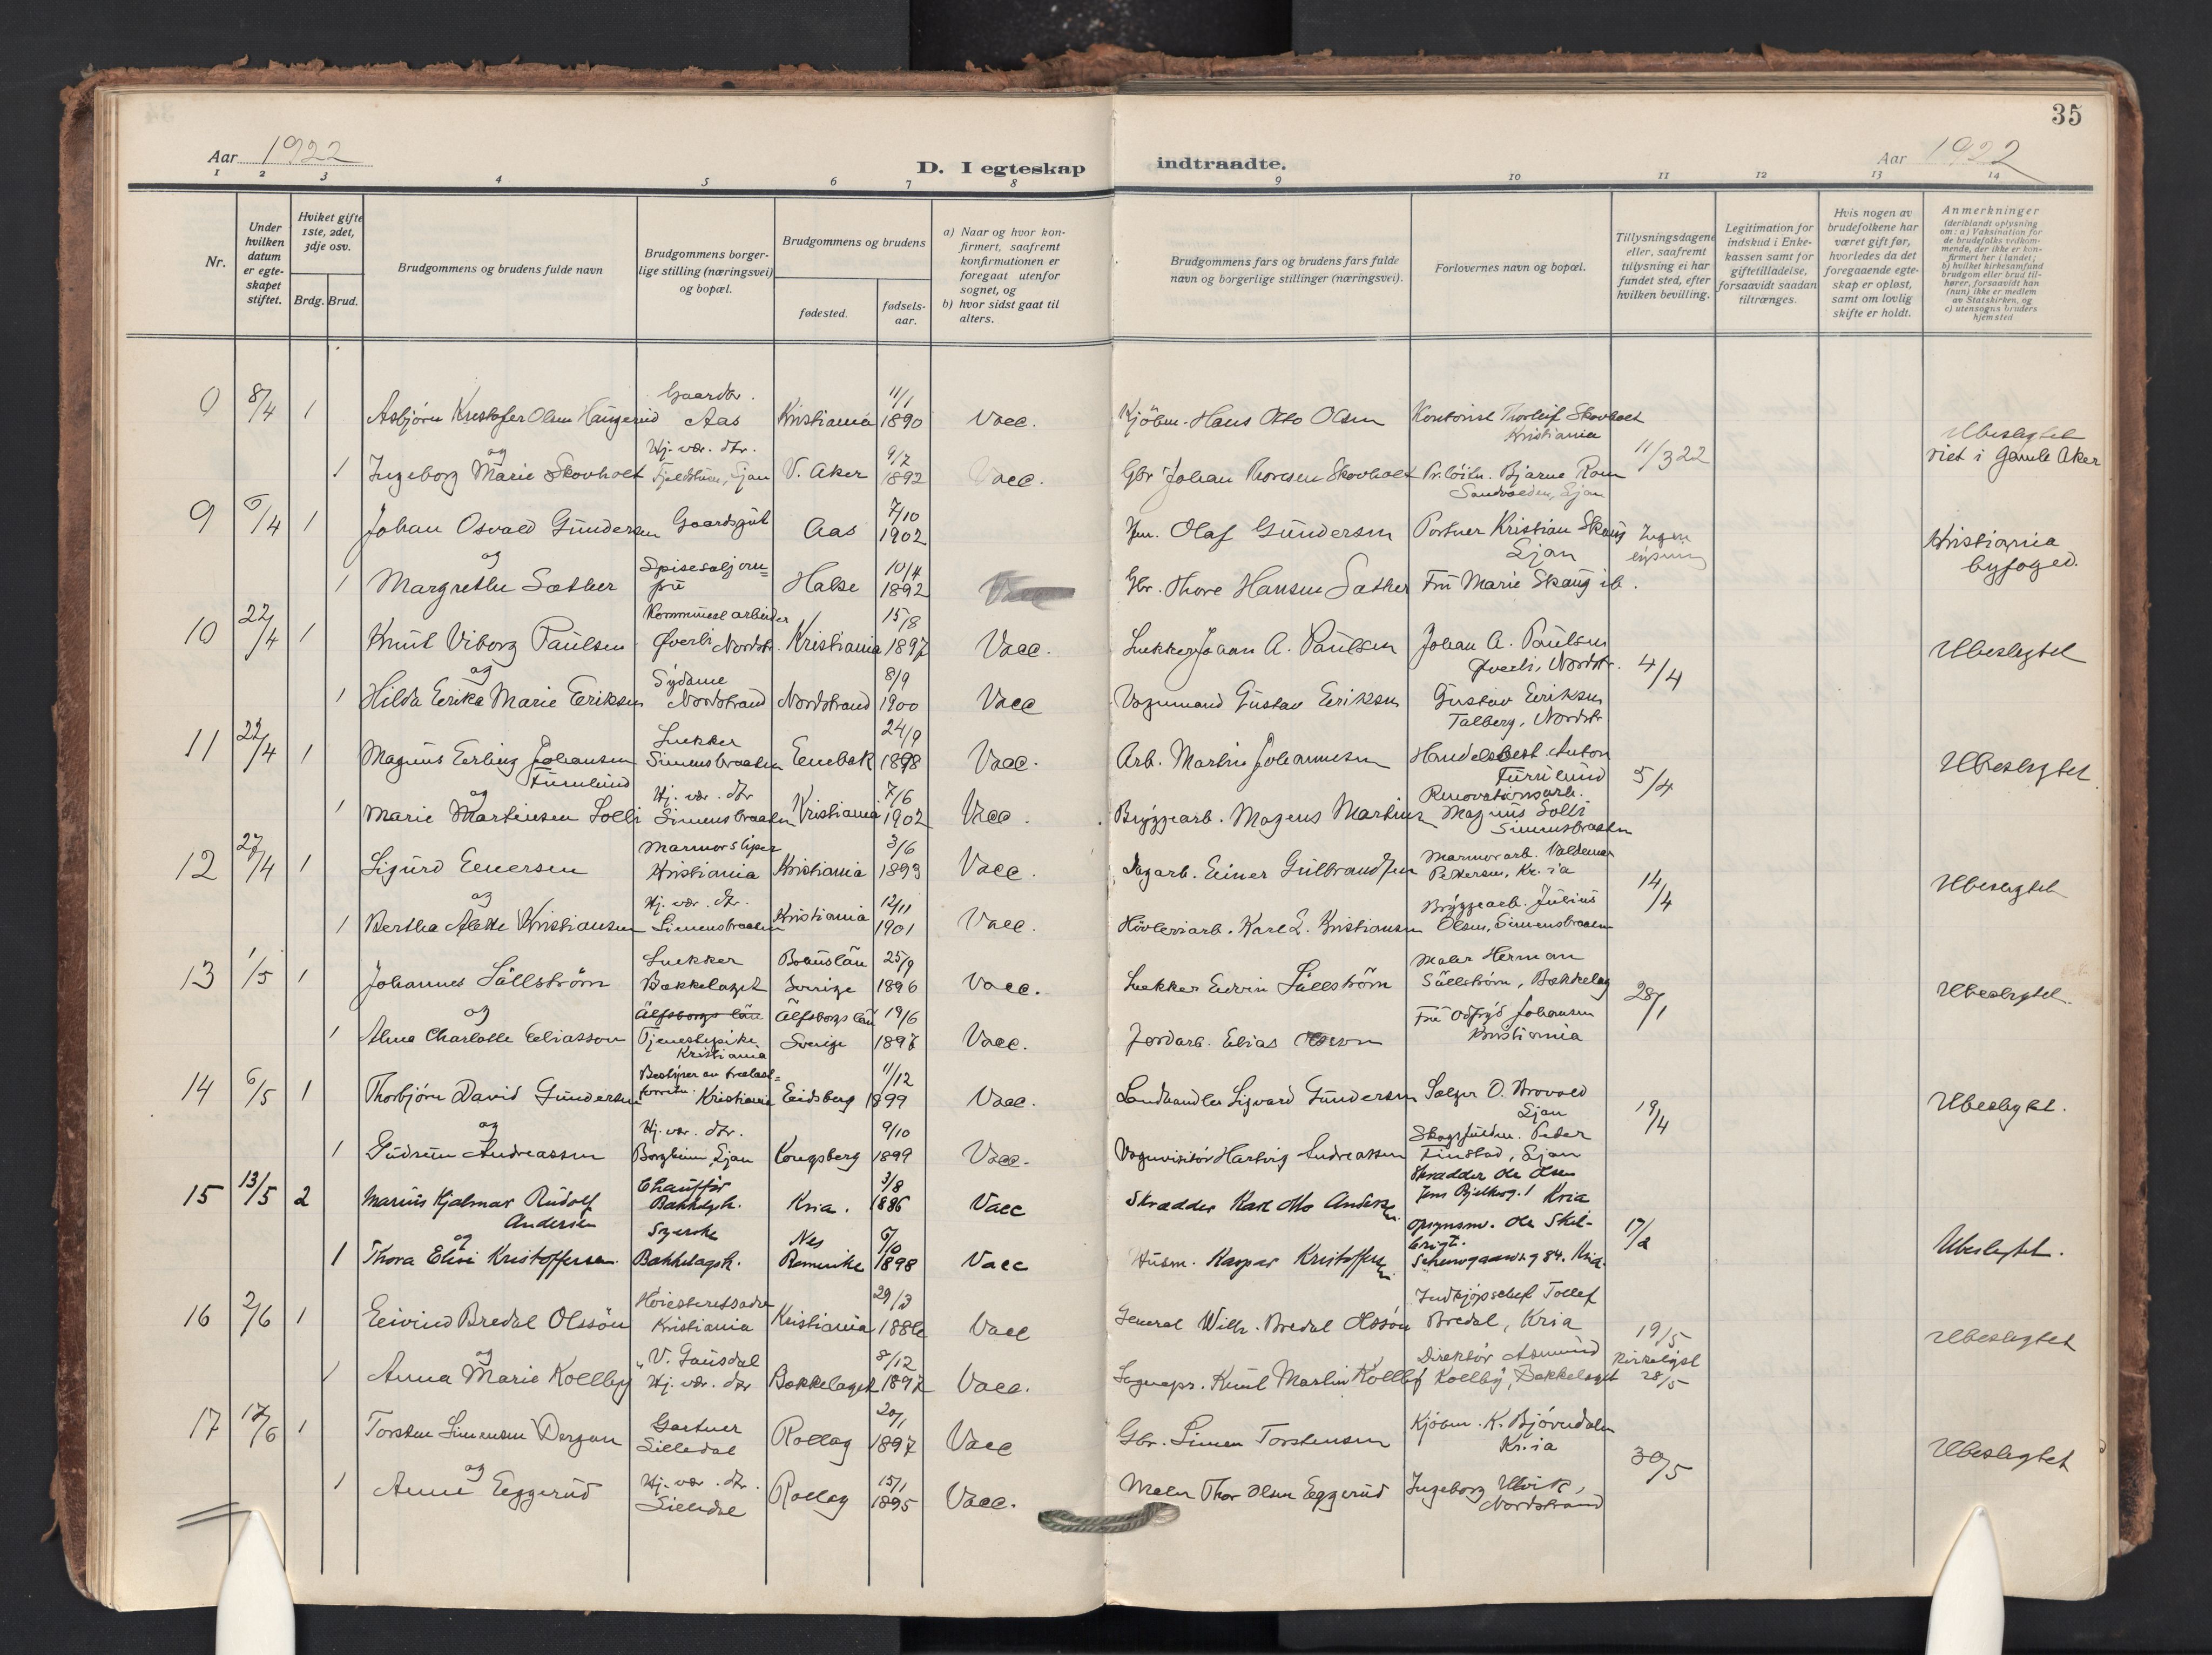 35
Aar 1922
D. I egteskap indtraadte.
Aar 1922
1 2 3 4 5 6 7 8 9 10 11 12 13 14
Nr.
Under hvilken datum er egteskapet stiftet.
Hviket gifte 1ste, 2det, 3dje osv.
Brdg. Brud.
Brudgommens og brudens fulde navn
Brudgommens borgerlige stilling (næringsvei) og bopæl.
Brudgommens og brudens
fødested.
fødselsaar.
a) Naar og hvor konfirmert, saafremt konfirmationen er foregaat utenfor sognet, og
b) hvor sidst gaat til alters.
Brudgommens fars og brudens fars fulde navn og borgerlige stillinger (næringsvei).
Forlovernes navn og bopæl.
Tillysningsdagene eller, saafremt tillysning ei har fundet sted, efter hvilken bevilling.
Legitimation for indskud i Enkekassen samt for giftetilladelse, forsaavidt saadan tiltrænges.
Hvis nogen av brudefolkene har været gift før, hvorledes da det foregaaende egteskap er opløst, samt om lovlig skifte er holdt.
Anmerkninger
(deriblandt oplysning om: a) Vaksination for de brudefolks vedkommende, der ikke er konfirmert her i landet; b) hvilket kirkesamfund brudgom eller brud tilhører, forsaavidt han (hun) ikke er medlem av Statskirken, og c) utensogns bruders hjemsted
8/4 1 Asbjørn Kristofer Olsen Haugerud Gaardbr. Aas Kristiania 11/1 1890 Vacc. Kjöbm. Hans Otto Olsen Kontorist Thorleif Skovholt Kristiania
og
1 Ingeborg Marie Skovholt Hj. vær. dtr. Ljan V. Aker 9/7 1892 Vacc. Gbr Johan Thoresen Skovholt Bjarne Ljan 11/3 22 Ubeslegtet viet i Gamle Aker
9 6/4 1 Johan Osvald Gundersen Gaardsgut Aas 7/10 1902 Olaf Gundersen Portner Kristian Skaug Ljan Ingen lysning Kristiania byfoged.
og
1 Margrethe Sæther Halse 10/4 1892 Vacc Gbr. Thore Hansen Sæther Fru Marie Skaug ib.
10 22/4 1 Knut Viborg Paulsen Kommunearbeider Øverli Nordstr. Kristiania 15/8 1897 Vacc. Snekker Johan A. Paulsen Johan A. Paulsen Øverli, Nordstr. 4/4 Ubeslegtet
og
1 Hilda Erika Marie Eriksen Sydame Nordstrand Nordstrand 8/9 1900 Vacc Vognmand Gustav Eriksen Gustav Eriksen Talberg, Nordstr
11 22/4 1 Magnus Erling Johansen Furulund Snekker Simensbraaten Enebak 24/9 1898 Vacc. Arb. Martin Johannesen Handelsbest. Anton Furulund 5/4 Ubeslegtet
og
1 Marie Martinsen Solli Hj. vær. dtr Simensbraaten Kristiania 7/6 1902 Vacc. Bryggearb. Magnus Martinsen Renovationsarb. Magnus Solli Simensbraaten
12 27/4 1 Sigurd Enersen Marmorsliper Kristiania Kristiania 3/6 1893 Vacc. Dagarb. Einer Gulbrandsen Marmorarb. Valdemar Pettersen, Kr.ia 14/4 Ubeslegtet
og
1 Bertha Alette Kristiansen Hj. vær. dtr. Simensbraaten Kristiania 12/11 1901 Vacc. Høvleriarb. Karl L. Kristiansen Bryggearb. Julius Olsen, Simensbraaten
13 1/5 1 Johannes Sällström Snekker Bækkelaget Bohuslän Sverige 25/9 1896 Vacc. Snekker Edvin Sällström Maler Herman Sällström, Bækkelag 28/1 Ubeslegtet.
og
1 Alma Charlotte Eliasson Älfsborgs län Tjenestepike. Kristiania Älfsborgs län Sverige 19/6 1897 Vacc. Jordarb. Elias Fru Johansen Kristiania
14 6/5 1 Thorbjørn David Gundersen Bestyrer av trælastforretn. Kristiania Eidsberg 11/12 1899 Vacc. Landhandler Sigvard Gundersen Selger O. Brovold Ljan 19/4 Ubeslegtet.
og
1 Gudrun Andreassen Hj. vær. dtr. Borgheim, Ljan Kongsberg 9/10 1899 Vacc. Vognvisitør Hartvig Andreassen Peder Finstad, Ljan
15 13/5 2 Marius Hjalmar Rudolf Andersen Chauffør Bækkelagh. Kria. 3/8 1886 Vacc Skrædder Karl Otto Andersen Skrædder Ole Olsen Jens Bjelkesg. 1 Kria
og
1 Thora Elise Kristoffersen Syerske Bækkelagsh. Nes Romerike 6/10 1898 Vacc Husm. Kaspar Kristoffersen Opsynsm. Ole Schweigaardsg 84. Kria. 17/2 Ubeslegtet.
16 2/6 1 Eivind Bredal Olssøn Høiesteretsadv Kristiania Kristiania 29/3 Vacc General Wilh. Bredal Olssøn Indkjøpschef Tollef Bredal, Kria 19/5 Ubeslegtet
og
1 Anna Marie Kollby V. Gausdal Hj. vær. dtr Bækkelaget 8/12 1897 Vacc. Sogneprs. Knut Martin Kollby Direktør Asmund Kollby, Bækkelaget Kirkelyst 28/5
17 17/6 1 Torsten Simensen Dergan Gartner Lilledal Rollag 20/1 1897 Vacc Gbr. Simen Torstensen Kjøbm. K. Bjørndalen Kr.ia 30/5 Ubeslegtet
og
1 Anne Eggerud Hj. vær. dtr. Lilledal Rollag 15/1 1895 Vacc. Maler Thor Olsen Eggerud Ingeborg Ulvik, Nordstrand